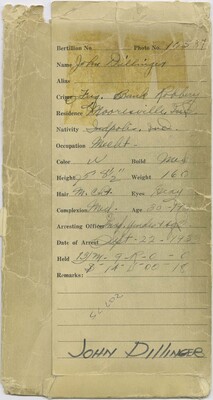 Bertillon No. Photo No. 10587
Name John Dillinger
Alias
Crime Fug. Bank Robbery
Residence Mooresville, Ind.
Nativity Indpols. Ind.
Occupation Mecht
Color W Build Med
Height 5' 8½" Weight 160
Hair M. Cht. Eyes Gray
Complexion Med. Age 30
Arresting Officer
Date of Arrest Sept-22-1933
Held
Remarks:
John Dillinger